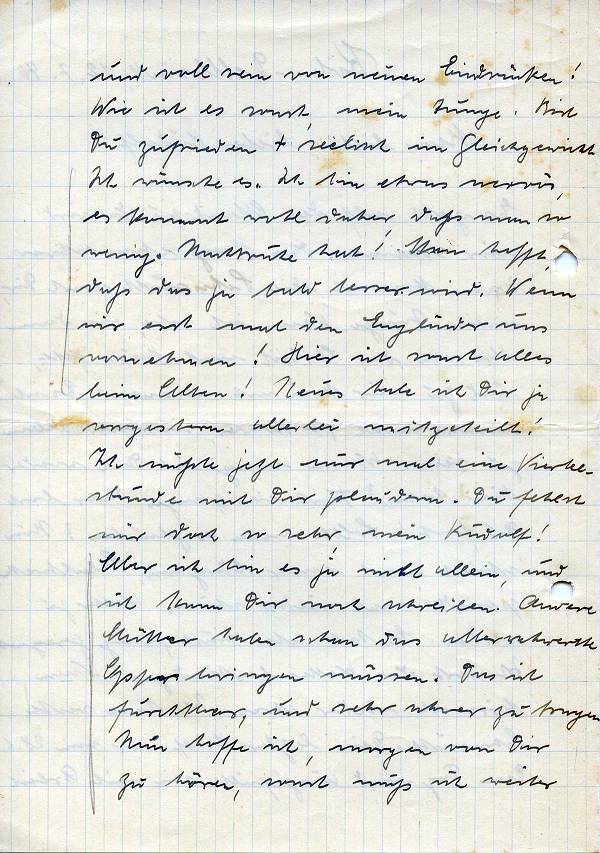 und voll sein von neuen Eindrücken!
Wie ist es sonst, mein Junge. Bist
Du zufrieden + seelisch im Gleichgewicht
Ich wünsche es. Ich bin etwas nervös,
es kommt wohl daher, dass man so
wenig Nachtruhe hat! Man hofft,
dass das ja bald besser wird. Wenn
wir erst mal den Engländer uns
vornehmen! Hier ist sonst alles
beim Alten! Neues habe ich Dir ja
vorgestern allerlei mitgeteilt!
Ich müsste jetzt nur mal eine Viertel-
stunde mit Dir plaudern. Du fehlst
mir doch so sehr, mein Rudolf!
Aber ich bin es ja nicht allein, und
ich kann Dir noch schreiben. Andere
Mütter haben schon das allerschwerste
Opfer bringen müssen. Das ist
furchtbar, und sehr schwer zu tragen
Nun hoffe ich, morgen von Dir
zu hören, sonst muss ich weiter